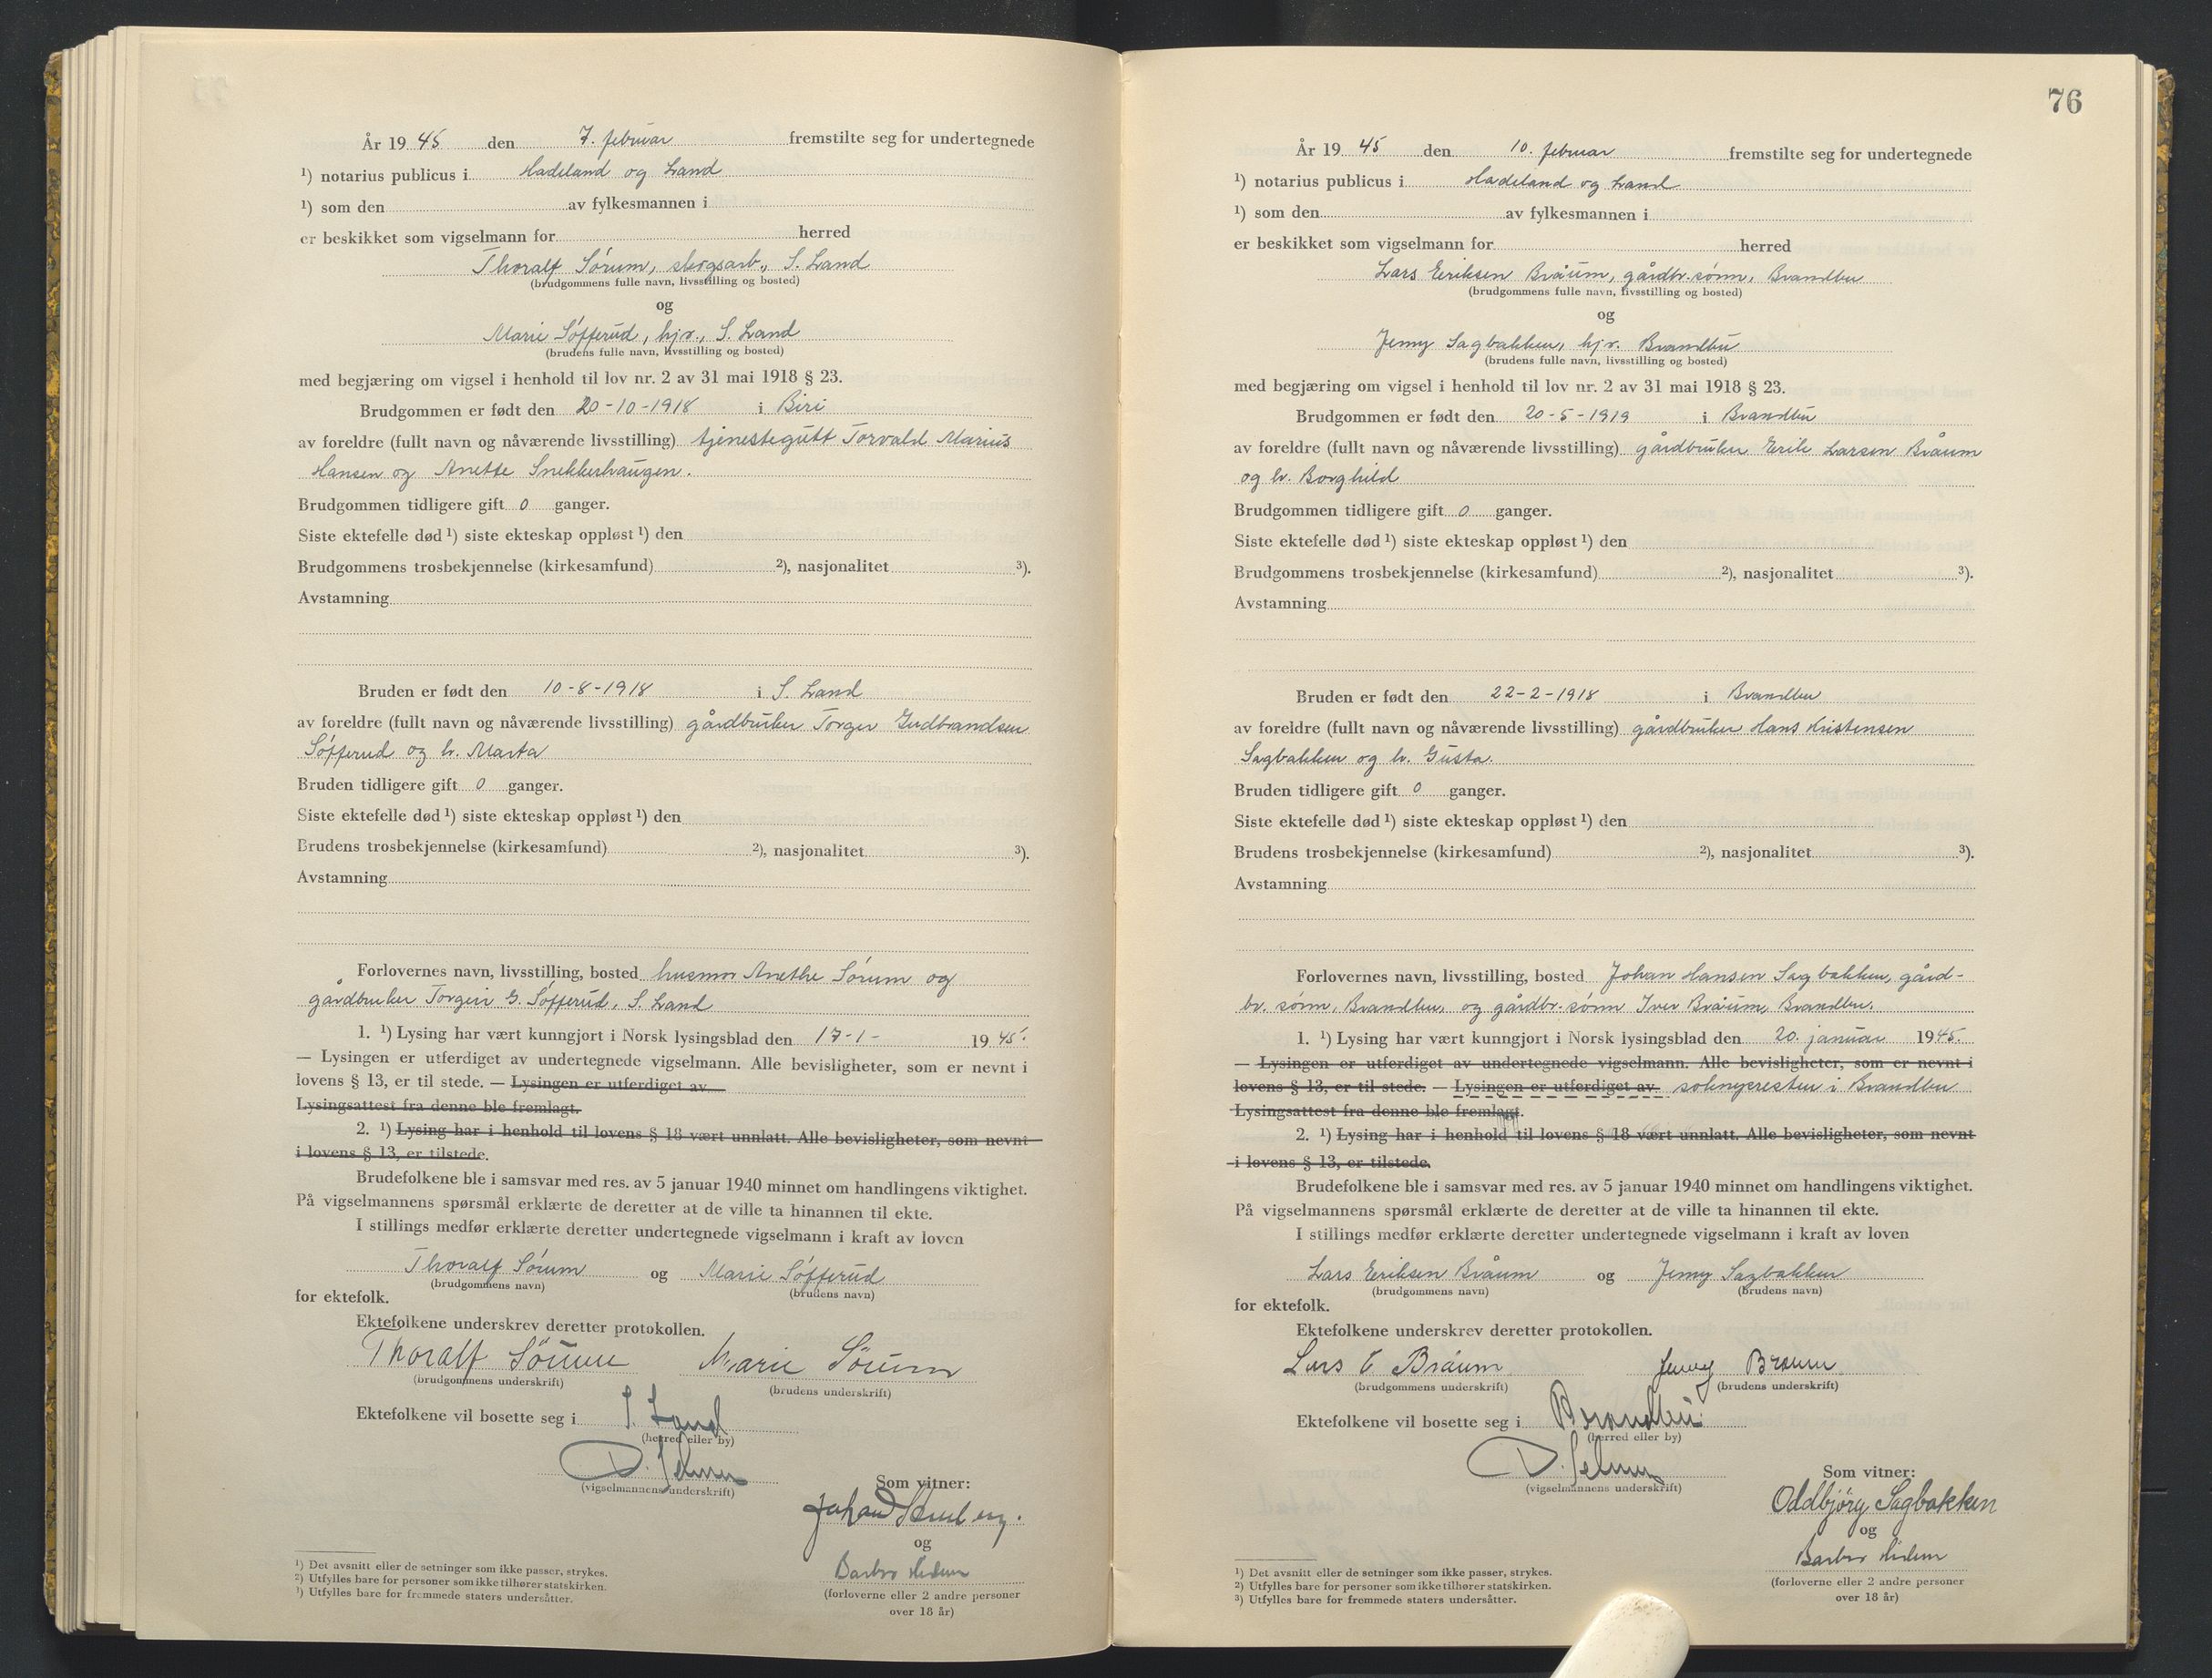 År 19 45 den 7. februar fremstilte seg for undertegnede
¹) notarius publicus i Hadeland og Land
¹) som den av fylkesmannen i
er beskikket som vigselmann for herred
Thoralf Sørum, skogsarb., S. Land
(brudgommens fulle navn, livsstilling og bosted)
og
Marie Søfferud, hjv., S. Land
(brudens fulle navn, livsstilling og bosted)
med begjæring om vigsel i henhold til lov nr. 2 av 31 mai 1918 § 23.
Brudgommen er født den 20-10-1918 i Biri
av foreldre (fullt navn og nåværende livsstilling) tjenestegutt Torvald Marius
Hansen og Anette Snekkerhaugen.
Brudgommen tidligere gift 0 ganger.
Siste ektefelle død ¹) siste ekteskap oppløst ¹) den
Brudgommens trosbekjennelse (kirkesamfund) ²), nasjonalitet ³).
Avstamning
Bruden er født den 10-8-1918 i S. Land
av foreldre (fullt navn og nåværende livsstilling) gårdbruker Torger Gudbrandsen
Søfferud og h. Marta
Bruden tidligere gift 0 ganger.
Siste ektefelle død ¹) siste ekteskap oppløst ¹) den
Brudens trosbekjennelse (kirkesamfund) ²), nasjonalitet ³).
Avstamning
Forlovernes navn, livsstilling, bosted husmor Anethe Sørum og
gårdbruker Torgeir G. Søfferud, S. Land
1. ¹) Lysing har vært kunngjort i Norsk lysingsblad den 17-1- 19 45.
— Lysingen er utferdiget av undertegnede vigselmann. Alle bevisligheter, som er nevnt i
lovens § 13, er til stede. — Lysingen er utferdiget av
Lysingsattest fra denne ble fremlagt.
2. ¹) Lysing har i henhold til lovens § 18 vært unnlatt. Alle bevisligheter, som nevnt
i lovens § 13, er tilstede.
Brudefolkene ble i samsvar med res. av 5 januar 1940 minnet om handlingens viktighet.
På vigselmannens spørsmål erklærte de deretter at de ville ta hinannen til ekte.
I stillings medfør erklærte deretter undertegnede vigselmann i kraft av loven
Thoralf Sørum og Marie Søfferud
(brudgommens navn) (brudens navn)
for ektefolk.
Ektefolkene underskrev deretter protokollen.
Thoralf Sörum Marie Sörum
(brudgommens underskrift) (brudens underskrift)
Ektefolkene vil bosette seg i S. Land
(herred eller by)
D. Selmer
(vigselmannens underskrift)
Som vitner:
Johan
og
Barbro
(forloverne eller 2 andre personer
over 18 år)
¹) Det avsnitt eller de setninger som ikke passer, strykes.
²) Utfylles bare for personer som ikke tilhører statskirken.
³) Utfylles bare for fremmede staters undersåtter.
76
År 19 45 den 10. februar fremstilte seg for undertegnede
¹) notarius publicus i Hadeland og Land
¹) som den av fylkesmannen i
er beskikket som vigselmann for herred
Lars Eriksen Bråum, gårdbr.sønn, Brandbu
(brudgommens fulle navn, livsstilling og bosted)
og
Jenny Sagbakken, hjv. Brandbu
(brudens fulle navn, livsstilling og bosted)
med begjæring om vigsel i henhold til lov nr. 2 av 31 mai 1918 § 23.
Brudgommen er født den 20-5-1919 i Brandbu
av foreldre (fullt navn og nåværende livsstilling) gårdbruker Erik Larsen Bråum
og h. Borghild
Brudgommen tidligere gift 0 ganger.
Siste ektefelle død ¹) siste ekteskap oppløst ¹) den
Brudgommens trosbekjennelse (kirkesamfund) ²), nasjonalitet ³).
Avstamning
Bruden er født den 22-2-1918 i Brandbu
av foreldre (fullt navn og nåværende livsstilling) gårdbruker Hans Kristensen
Sagbakken og h. Gusta.
Bruden tidligere gift 0 ganger.
Siste ektefelle død ¹) siste ekteskap oppløst ¹) den
Brudens trosbekjennelse (kirkesamfund) ²), nasjonalitet ³).
Avstamning
Forlovernes navn, livsstilling, bosted Johan Hansen Sagbakken, gård-
br. sønn, Brandbu, og gårdbr. sønn Iver Bråum, Brandbu.
1. ¹) Lysing har vært kunngjort i Norsk lysingsblad den 20. januar 19 45.
— Lysingen er utferdiget av undertegnede vigselmann. Alle bevisligheter, som er nevnt i
lovens § 13, er til stede. — Lysingen er utferdiget av soknepresten i Brandbu
Lysingsattest fra denne ble fremlagt.
2. ¹) Lysing har i henhold til lovens § 18 vært unnlatt. Alle bevisligheter, som nevnt
i lovens § 13, er tilstede.
Brudefolkene ble i samsvar med res. av 5 januar 1940 minnet om handlingens viktighet.
På vigselmannens spørsmål erklærte de deretter at de ville ta hinannen til ekte.
I stillings medfør erklærte deretter undertegnede vigselmann i kraft av loven
Lars Eriksen Bråum og Jenny Sagbakken
(brudgommens navn) (brudens navn)
for ektefolk.
Ektefolkene underskrev deretter protokollen.
Lars E Bråum Jenny Bråum
(brudgommens underskrift) (brudens underskrift)
Ektefolkene vil bosette seg i Brandbu
(herred eller by)
D. Selmer
(vigselmannens underskrift)
Som vitner:
Oddbjörg Sagbakken
og
Barbro
(forloverne eller 2 andre personer
over 18 år)
¹) Det avsnitt eller de setninger som ikke passer, strykes.
²) Utfylles bare for personer som ikke tilhører statskirken.
³) Utfylles bare for fremmede staters undersåtter.